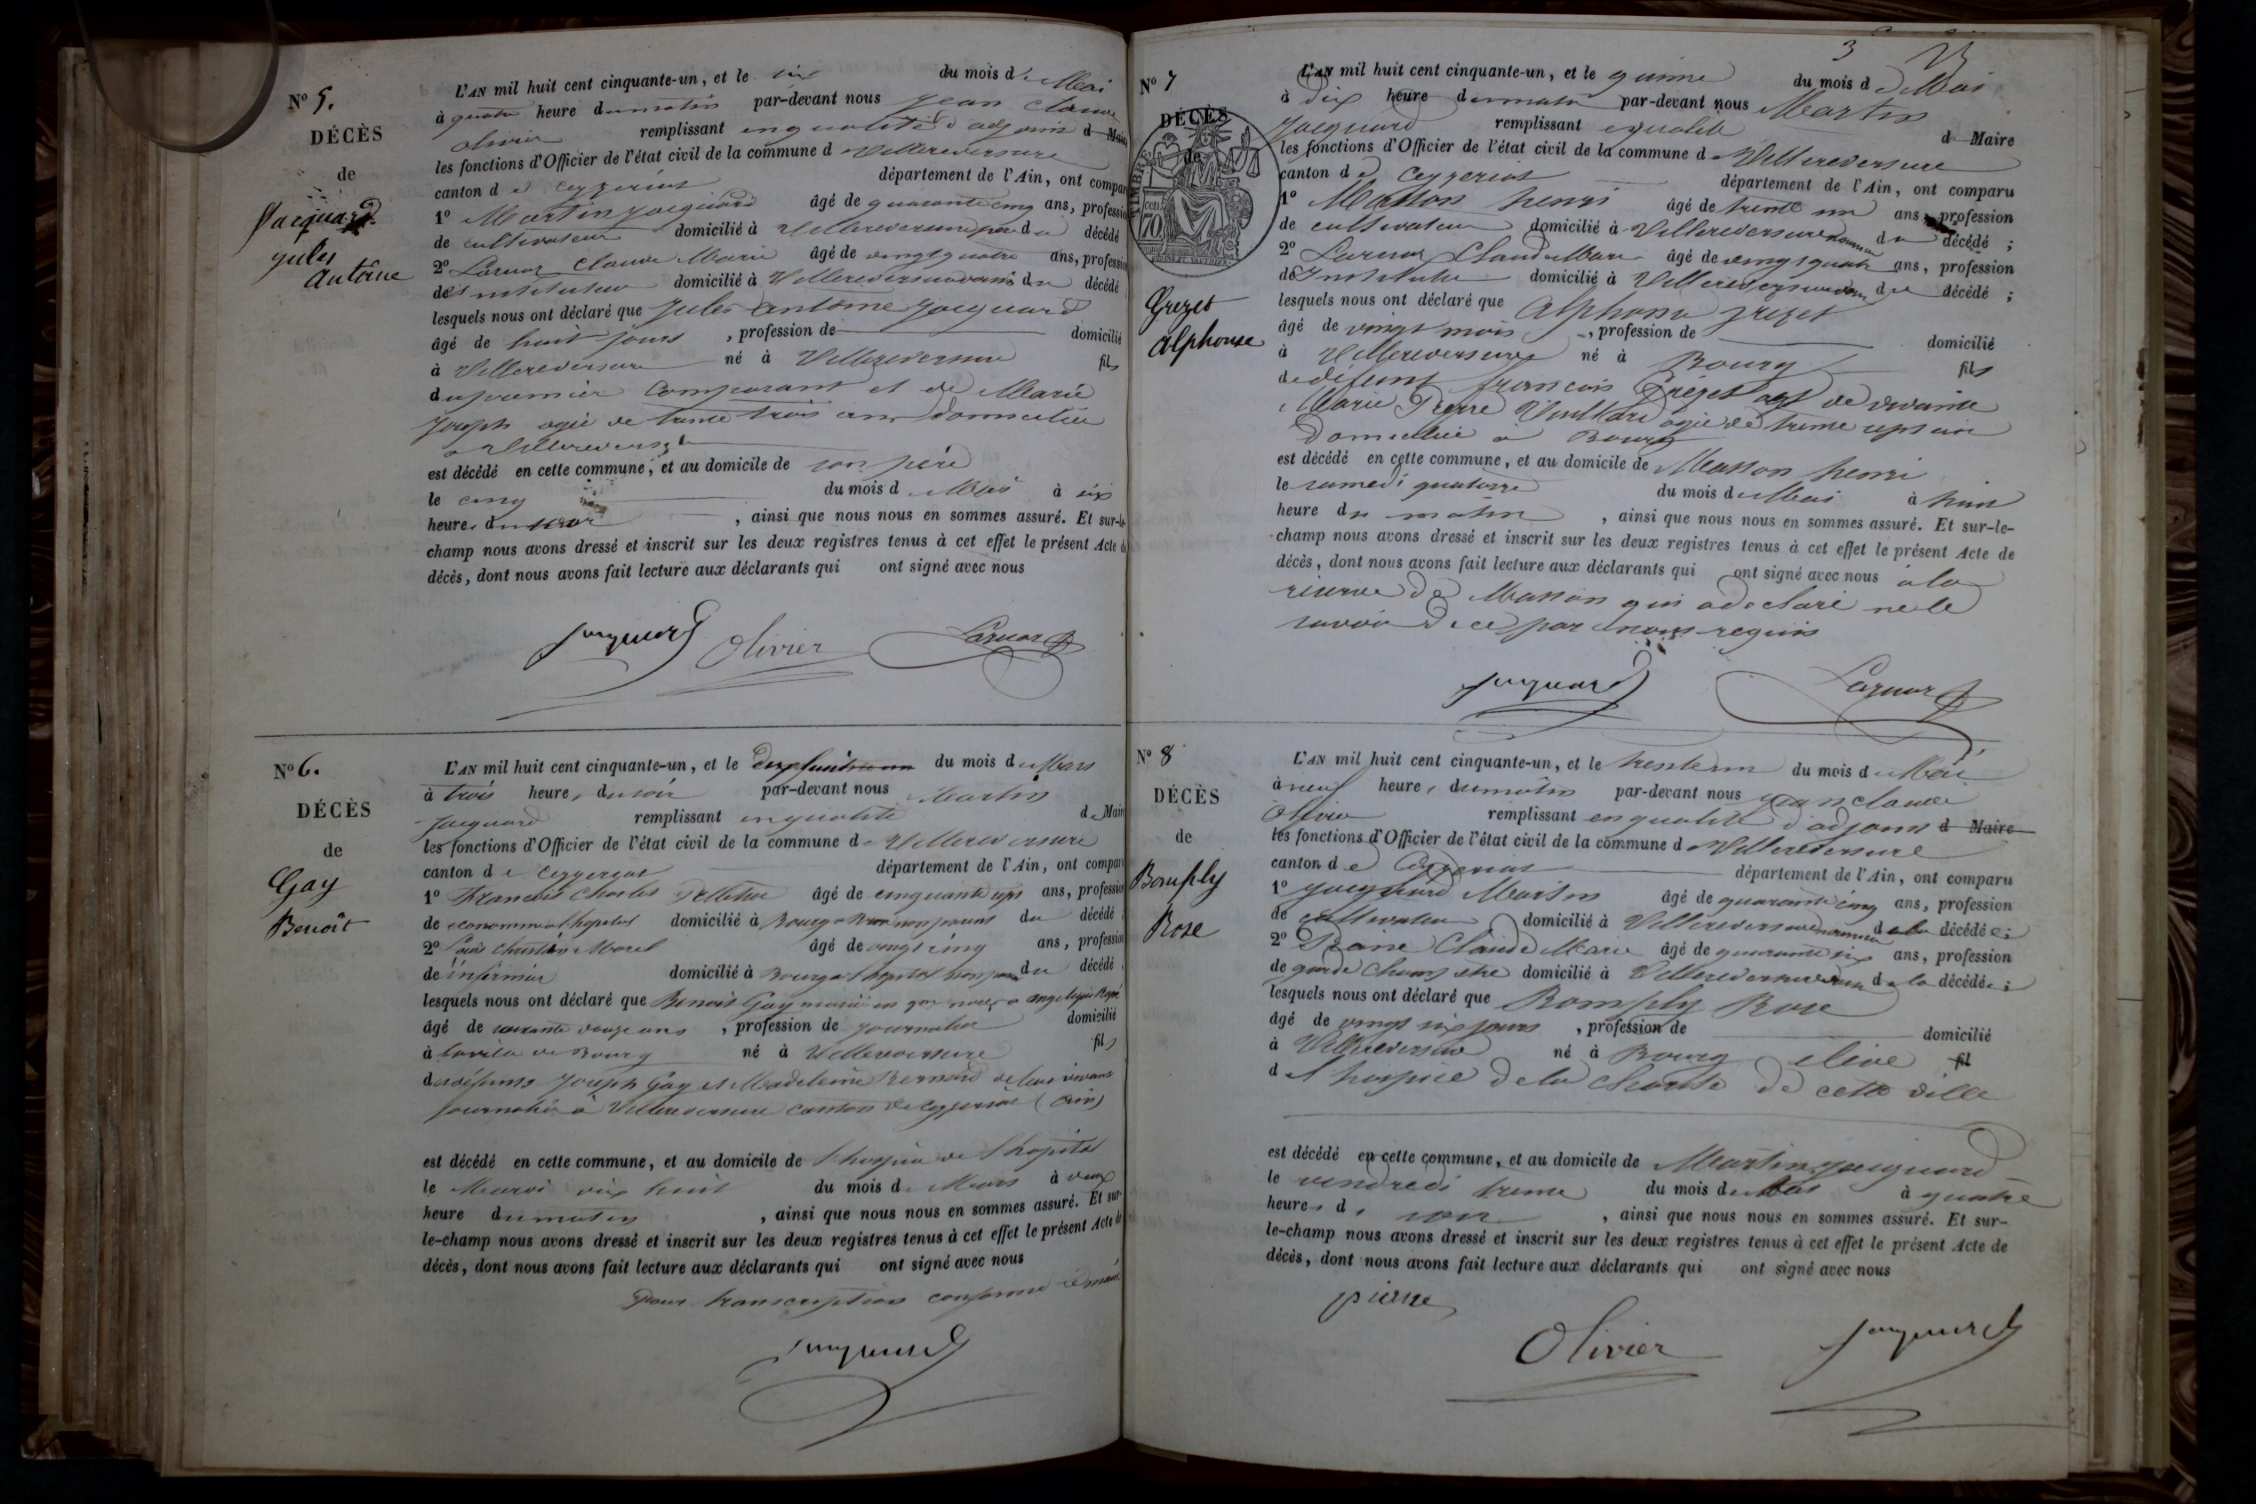 N° 5.
DÉCÈS
de
Jacquard
jules
Antoine
L'AN mil huit cent cinquante-un, et le six du mois de Mai
à quatre heure du matin par-devant nous jean claude
olivier remplissant en qualité d'adjoint d Maire
les fonctions d'Officier de l'état civil de la commune d Villereversure
canton de ceyzeriat département de l'Ain, ont comparu
1° Martin jacquard âgé de quarante cinq ans, profession
de cultivateur domicilié à Villereversure du décédé
2° Claude Marie âgé de vingt quatre ans, profession
de instituteur domicilié à Villereversure du décédé
lesquels nous ont déclaré que jules antoine jacquard
âgé de huit jours , profession de domicilié
à Villereversure né à Villereversure fils
du premier comparant et de Marie
joseph agée de trente trois ans domiciliée
a Villereversure
est décédé en cette commune, et au domicile de son père
le cinq du mois de Mai à six
heures du soir , ainsi que nous nous en sommes assuré. Et sur-le-
champ nous avons dressé et inscrit sur les deux registres tenus à cet effet le présent Acte de
décès, dont nous avons fait lecture aux déclarants qui ont signé avec nous
jacquard Olivier
N° 6.
DÉCÈS
de
Gay
Benoît
L'AN mil huit cent cinquante-un, et le du mois de Mars
à trois heures du soir par-devant nous Martin
jacquard remplissant en qualité de Maire
les fonctions d'Officier de l'état civil de la commune de Villereversure
canton de ceyzeriat département de l'Ain, ont comparu
1° Francois Charles âgé de cinquante ans, profession
de econome domicilié à Bourg du décédé
2° Morel âgé de vingt cinq ans, profession
de infirmier domicilié à Bourg du décédé
lesquels nous ont déclaré que Benoit Gay
âgé de ans , profession de journalier domicilié
à la ville de Bourg né à Villereversure fils
des défunts Joseph Gay et Madeleine Bernard de leur vivant
journalier à Villereversure canton de ceyzeriat (Ain)
est décédé en cette commune, et au domicile de l'hospice de l'hopital
le Mardi dix huit du mois de Mars à deux
heure du matin , ainsi que nous nous en sommes assuré. Et sur-
le-champ nous avons dressé et inscrit sur les deux registres tenus à cet effet le présent Acte de
décès, dont nous avons fait lecture aux déclarants qui ont signé avec nous
Pour transcription conforme
jacquard
3
N° 7
DÉCÈS
de
TIMBRE
70
Grezet
Alphonse
L'AN mil huit cent cinquante-un, et le quinze du mois de Mai
à dix heure du matin par-devant nous Martin
Jacquard remplissant en qualité d Maire
les fonctions d'Officier de l'état civil de la commune de Villereversure
canton de Ceyzeriat département de l'Ain, ont comparu
1° Masson henri âgé de trente un ans, profession
de cultivateur domicilié à Villereversure du décédé ;
2° Claude Marie âgé de vingt quatre ans, profession
de Instituteur domicilié à Villereversure du décédé ;
lesquels nous ont déclaré que Alphonse grezet
âgé de vingt mois , profession de domicilié
à Villereversure né à Bourg fils
de défunt françois Grezet et de vivante
Marie Pierre agée de trente sept ans
Domiciliée a Bourg
est décédé en cette commune, et au domicile de Masson henri
le samedi quatorze du mois de Mai à huit
heure du matin , ainsi que nous nous en sommes assuré. Et sur-le-
champ nous avons dressé et inscrit sur les deux registres tenus à cet effet le présent Acte de
décès, dont nous avons fait lecture aux déclarants qui ont signé avec nous à la
réserve de Masson qui a déclaré ne le
savoir de ce par nous requis
jacquard
N° 8
DÉCÈS
de
Bomply
Rose
L'AN mil huit cent cinquante-un, et le trente un du mois de Mai
à neuf heures du matin par-devant nous jean claude
Olivier remplissant en qualité d'adjoint d Maire
les fonctions d'Officier de l'état civil de la commune de Villereversure
canton de Ceyzeriat département de l'Ain, ont comparu
1° jacquard Martin âgé de quarante cinq ans, profession
de cultivateur domicilié à Villereversure de la décédée ;
2° Claude Marie âgé de quarante six ans, profession
de garde champetre domicilié à Villereversure de la décédée ;
lesquels nous ont déclaré que Bomply Rose
âgé de vingt six jours , profession de domicilié
à Villereversure né à Bourg élève fil
de l'hospice de la charité de cette ville
est décédé en cette commune, et au domicile de Martin jacquard
le vendredi trente du mois de Mai à quatre
heures d soir , ainsi que nous nous en sommes assuré. Et sur-
le-champ nous avons dressé et inscrit sur les deux registres tenus à cet effet le présent Acte de
décès, dont nous avons fait lecture aux déclarants qui ont signé avec nous
Olivier jacquard